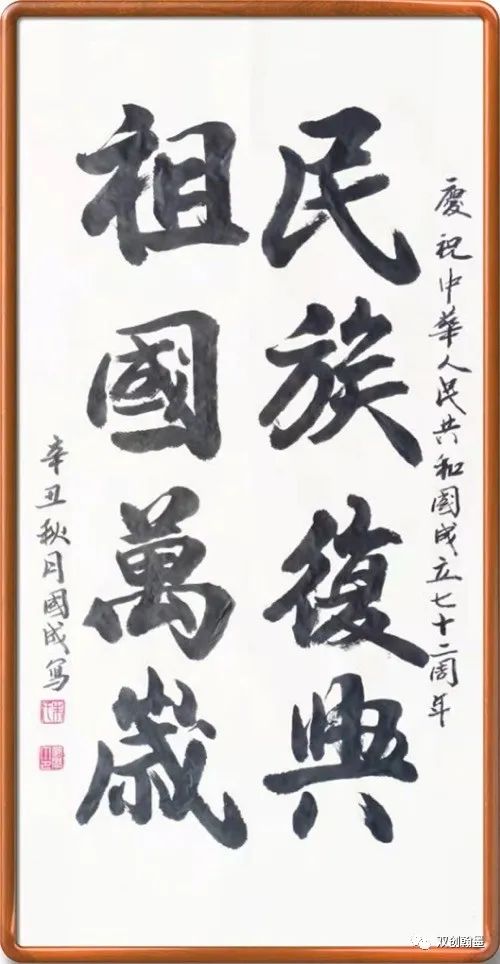 慶祝中華人民共和國成立七十二周年
民族復興
祖國萬歲
辛丑秋月國成寫
双创翰墨